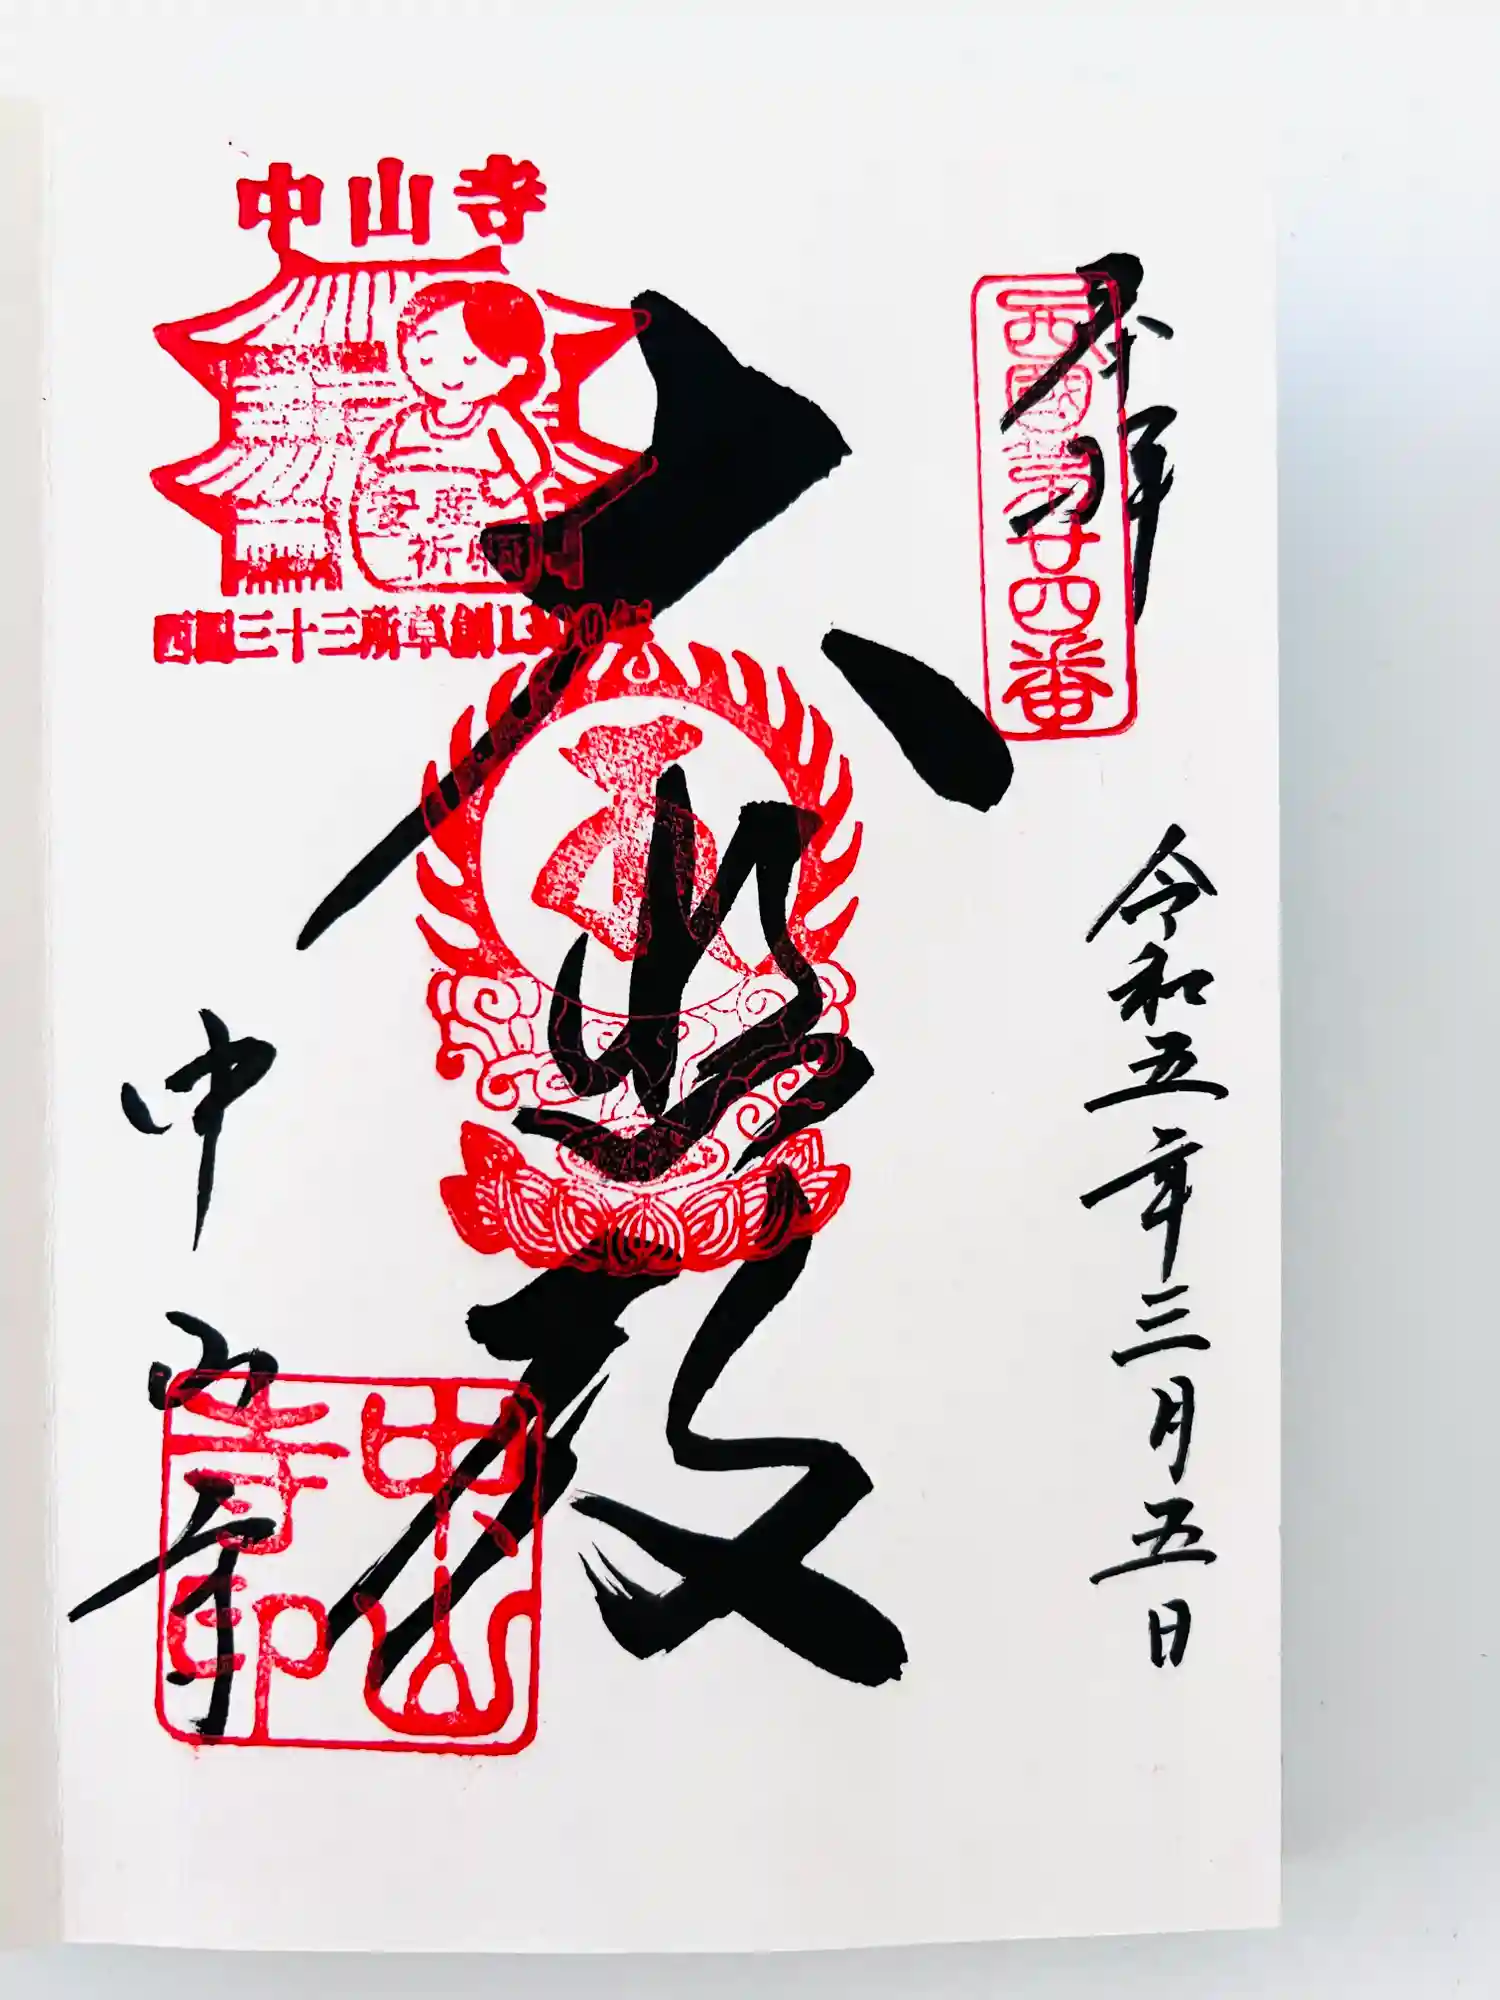 奉拝
西国第廿四番
令和五年三月五日
大悲殿
中山寺
安産
祈願
西国三十三所草創1300年
中山寺
中山寺印